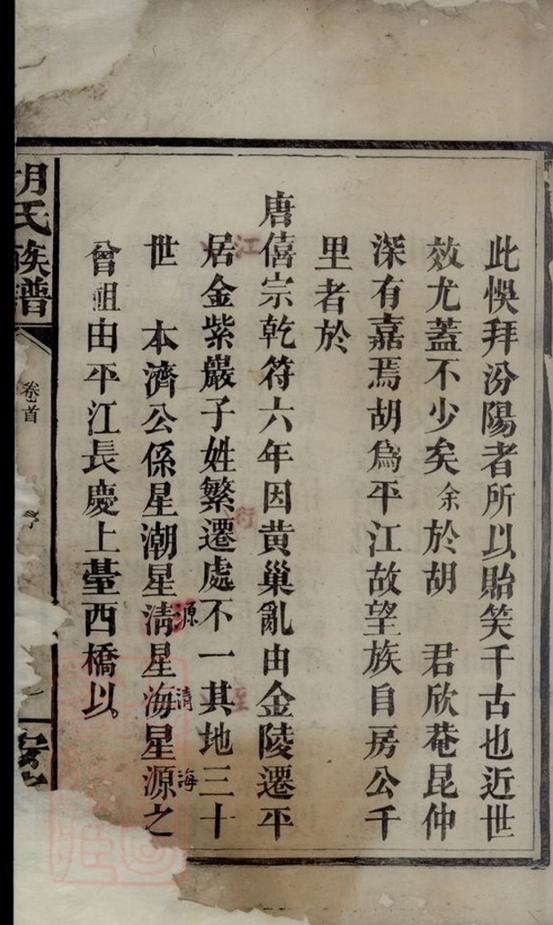 此悞拜汾陽者所以貽笑千古也近世
效尤蓋不少矣余於胡　君欣菴昆仲
深有嘉焉胡爲平江故望族自房公千
里者於
唐僖宗乾符六年因黃巢亂由金陵遷平
江
居金紫巖子姓繁遷處不一其地三十
衍
世　本濟公係星潮星淸星海星源之
源
清
海
曾祖由平江長慶上臺西橋以。
胡氏族譜
卷首
序